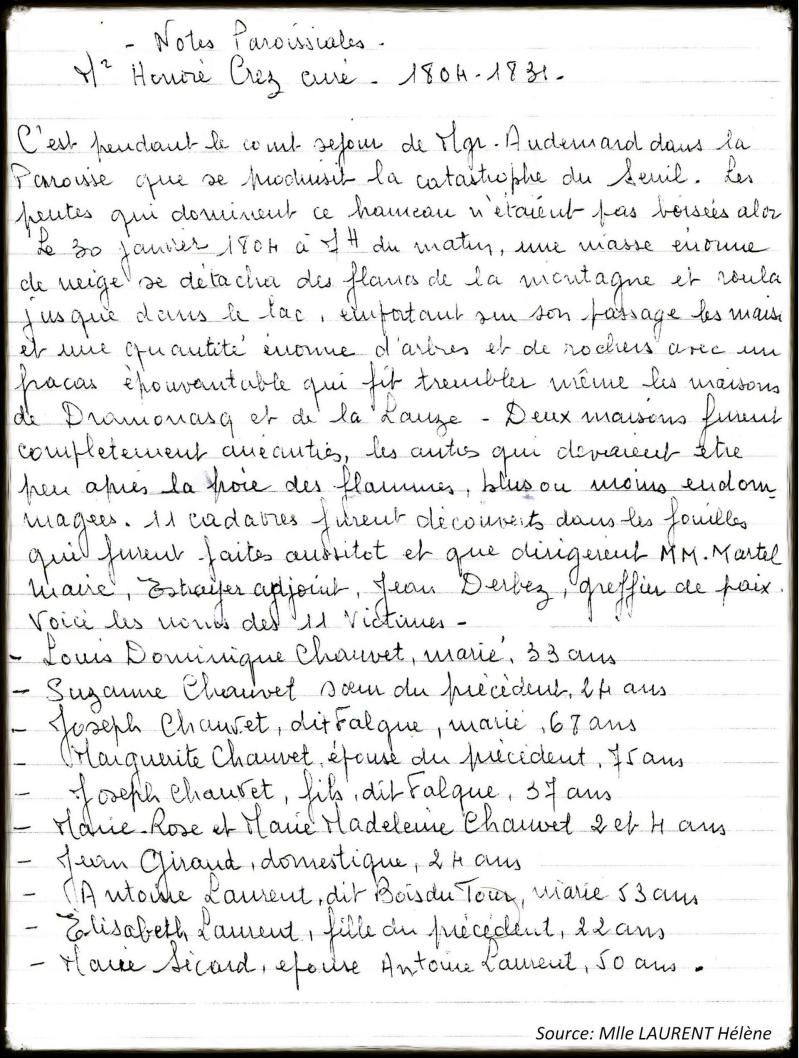 - Notes Paroissiales -
Mr Honoré Crez curé - 1804-1831 -
C'est pendant le court sejour de Mgr. Audemard dans la
Paroisse que se produisit la catastrophe du Seuil. Les
pentes qui dominent ce hameau n'étaient pas boisées alor
Le 30 janvier 1804 à 7H du matin, une masse énorme
de neige se détacha des flancs de la montagne et roula
jusque dans le lac, emportant sur son passage les mais
et une quantité énorme d'arbres et de rochers avec un
fracas épouvantable qui fit trembler même les maisons
de Dramonasq et de la Lauze - Deux maisons furent
completement anéanties, les autres qui devraient être
peu après la proie des flammes, plus ou moins endom,
magées. 11 cadavres furent découverts dans les fouilles
qui furent faites aussitot et que dirigerent MM. Martel
maire, Estrayer adjoint, Jean Derbez, greffier de paix.
Voici les noms des 11 Victimes -
- Louis Dominique Chauvet, marié, 33 ans
- Suzanne Chauvet sœur du précédent, 24 ans
- Joseph Chauvet, dit Falque, marié, 67 ans
- Marguerite Chauvet, épouse du précédent, 75 ans
- Joseph Chauvet, fils, dit Falque, 37 ans
- Marie-Rose et Marie Madeleine Chauvet 2 et 4 ans
- Jean Giraud, domestique, 24 ans
- Antoine Laurent, dit Bois du Tour, marié 53 ans
- Élisabeth Laurent, fille du précédent, 22 ans
- Marie Sicard, epouse Antoine Laurent, 50 ans.
Source: Mlle LAURENT Hélène